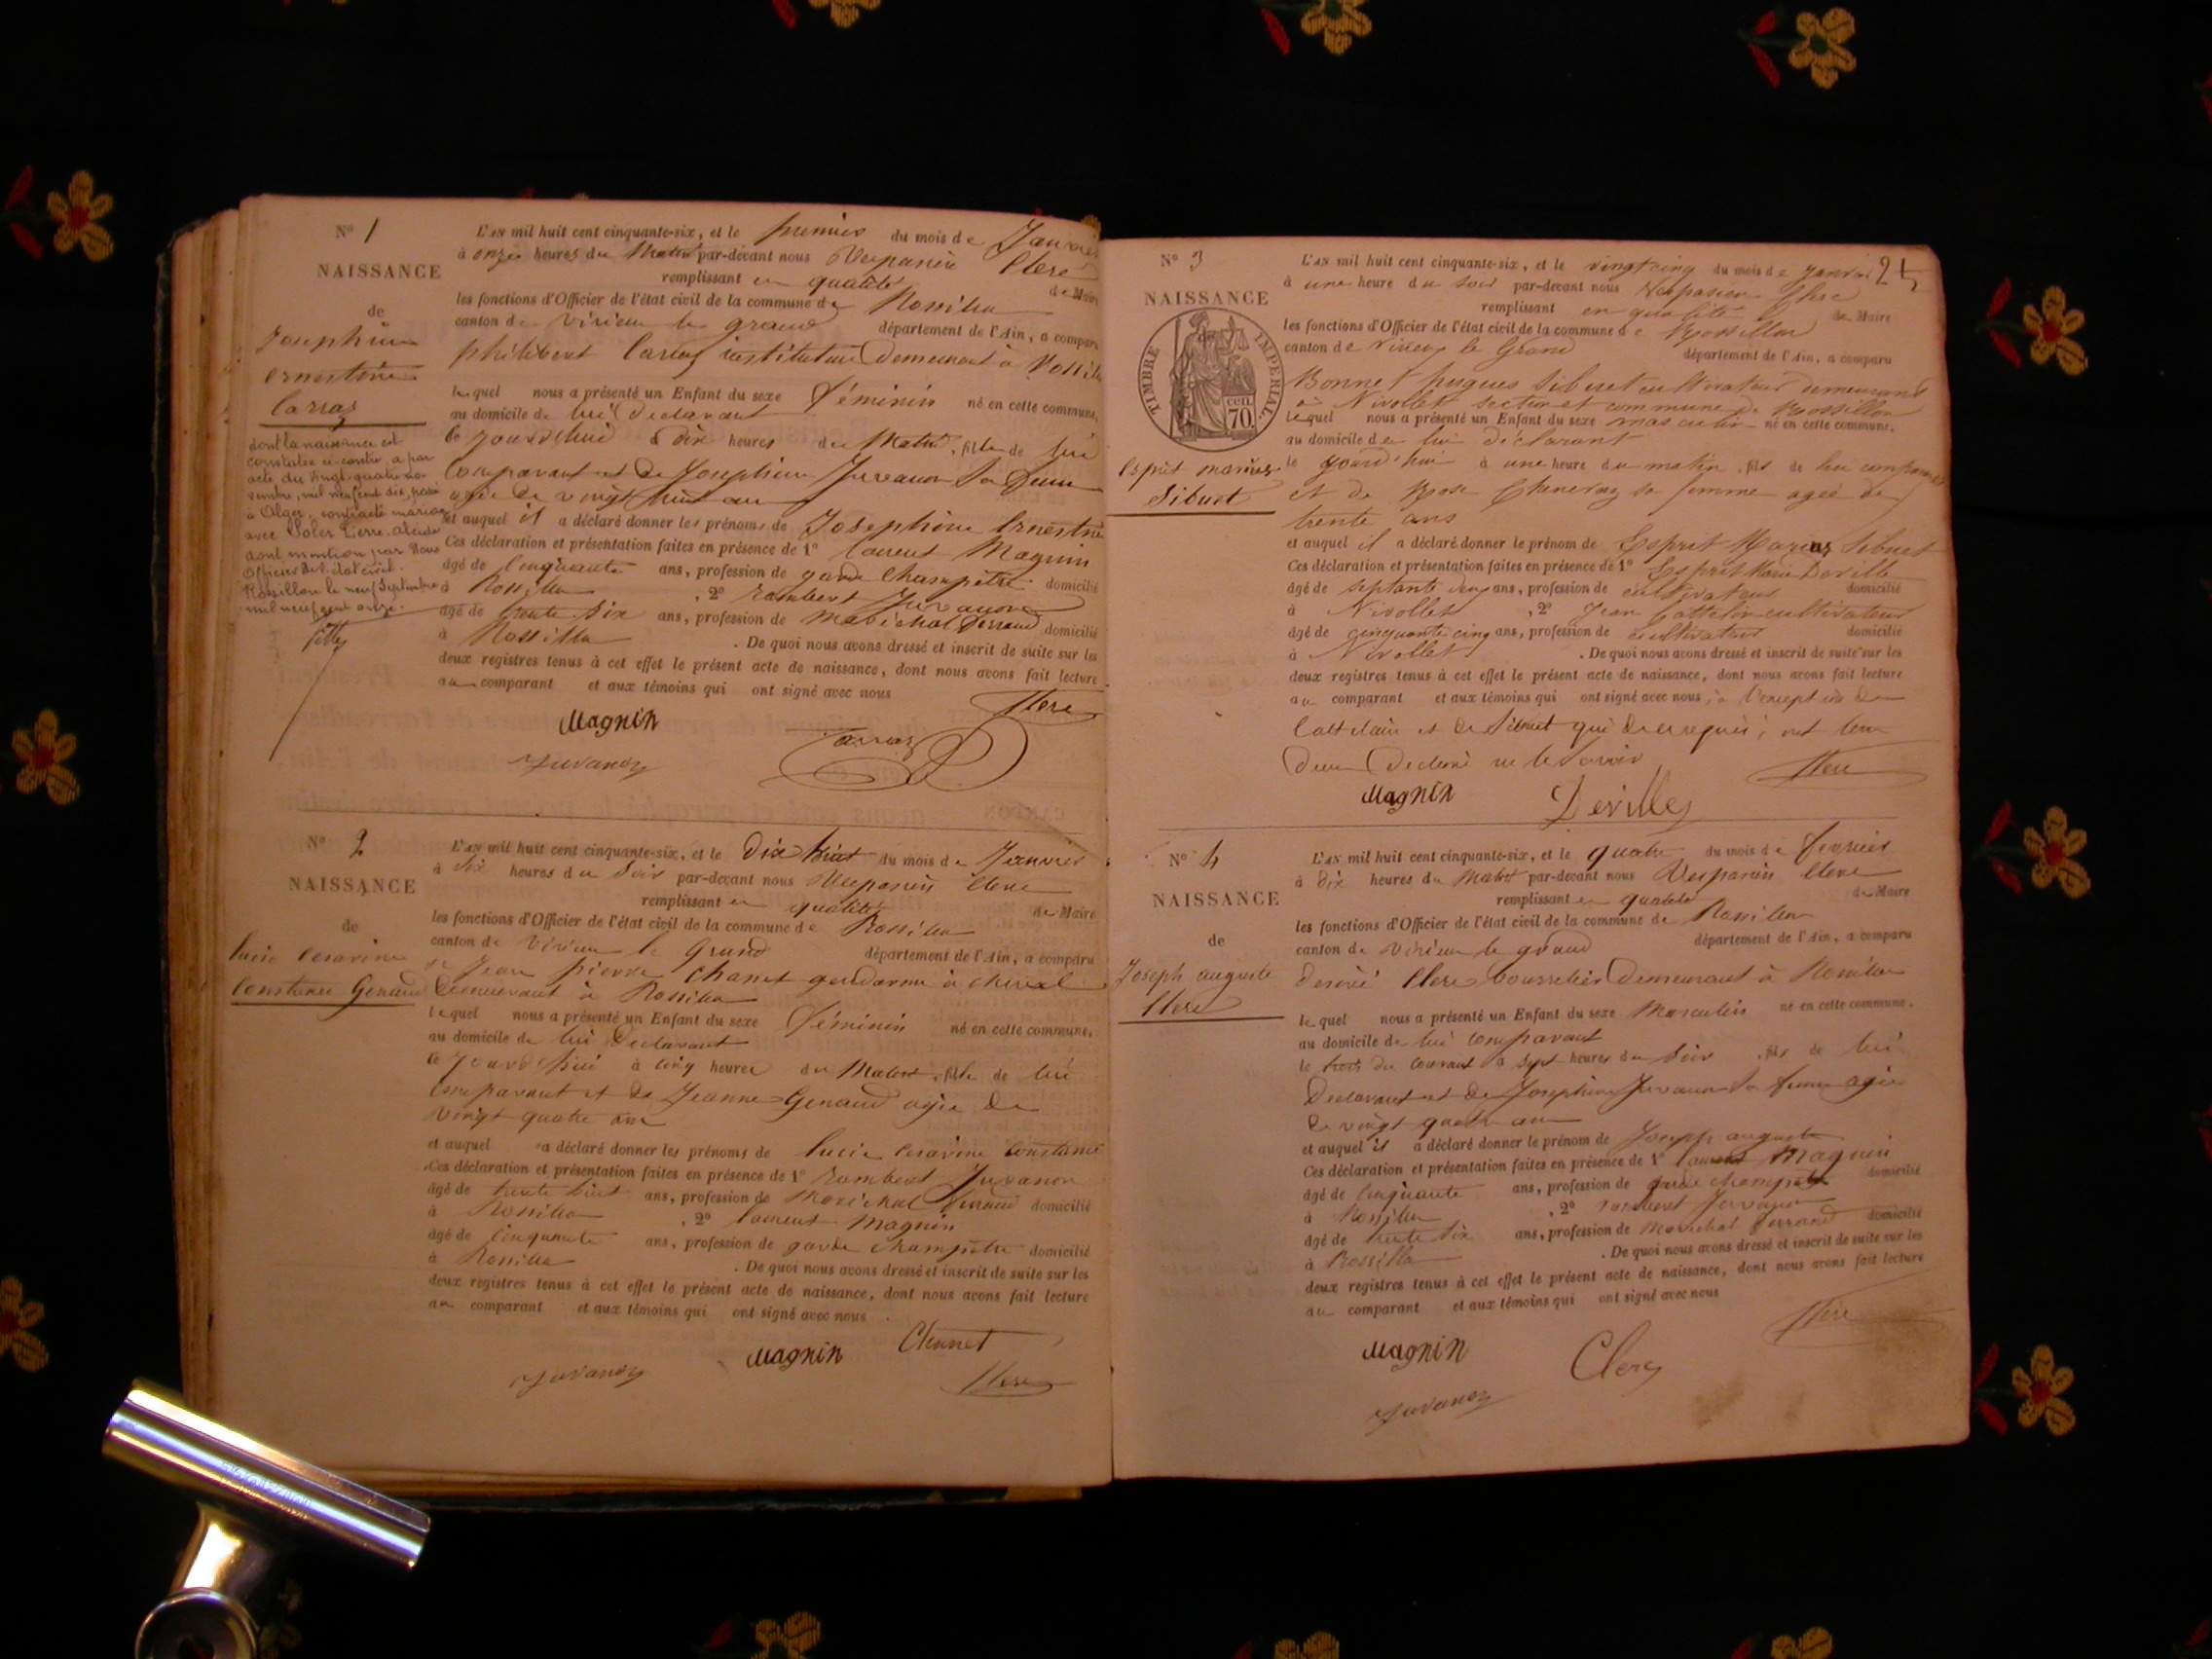 N° 1
NAISSANCE
de
Josephine
ernestine
Carraz
dont la naissance est
constatée ci-contre, a par
acte du vingt-quatre no
vembre, mil neuf cent dix, passé
à Alger, contracté mariage
avec Soler Pierre
dont mention par Nous
Officier de l'état civil.
Rossillon le neuf Septembre
mil neuf cent onze.
L'an mil huit cent cinquante-six, et le premier du mois de Janvier
à onze heures du Matin par-devant nous Vespasien Clerc
remplissant en qualité de Maire
les fonctions d'Officier de l'état civil de la commune de Rossillon
canton de Virieu le grand département de l'Ain, a comparu
philibert Carraz instituteur Demeurant à Rossillon
lequel nous a présenté un Enfant du sexe Féminin né en cette commune,
au domicile de lui Déclarant
le Jourd'hui à dix heures du Matin, fille de lui
Comparant et de Josephine Juvanon Sa femme
agée de vingt huit ans
et auquel il a déclaré donner les prénoms de Josephine Ernestine
Ces déclaration et présentation faites en présence de 1° Laurent Magnin
âgé de Cinquante ans, profession de garde Champêtre domicilié
à Rossillon , 2° rambert Juvanon
âgé de trente six ans, profession de Maréchal ferrand domicilié
à Rossillon . De quoi nous avons dressé et inscrit de suite sur les
deux registres tenus à cet effet le présent acte de naissance, dont nous avons fait lecture
au comparant et aux témoins qui ont signé avec nous
Clerc
Magnin
Carraz
Juvanon
N° 2
NAISSANCE
de
lucie Cesarine
Constance Genaud
L'an mil huit cent cinquante-six, et le Dix huit du mois de Janvier
à Six heures du Soir par-devant nous Vespasien Clerc
remplissant en qualité de Maire
les fonctions d'Officier de l'état civil de la commune de Rossillon
canton de Virieu le Grand département de l'Ain, a comparu
Jean pierre Chanet gendarme à cheval
Demeurant à Rossillon
lequel nous a présenté un Enfant du sexe Féminin né en cette commune,
au domicile de lui Declarant
le Jourd'hui à cinq heures du Matin, fille de lui
Comparant et de Jeanne Genaud agée de
vingt quatre ans
et auquel a déclaré donner les prénoms de lucie Cesarine Constance
Ces déclaration et présentation faites en présence de 1° rambert Juvanon
âgé de trente huit ans, profession de Maréchal ferrand domicilié
à Rossillon , 2° laurent Magnin
âgé de Cinquante ans, profession de garde Champêtre domicilié
à Rossillon . De quoi nous avons dressé et inscrit de suite sur les
deux registres tenus à cet effet le présent acte de naissance, dont nous avons fait lecture
au comparant et aux témoins qui ont signé avec nous .
Chanet
Magnin
Juvanon
Clerc
N° 3
NAISSANCE
TIMBRE IMPERIAL
cen.
70.
de
Esprit marius
Sibuet
25
L'an mil huit cent cinquante-six, et le vingt cinq du mois de Janvier
à une heure du soir par-devant nous Vespasien Clerc
remplissant en qualité de Maire
les fonctions d'Officier de l'état civil de la commune de Rossillon
canton de Virieu le Grand département de l'Ain, a comparu
Bonnet hugues Sibuet cultivateur demeurant
à Nivollet section et commune de Rossillon
lequel nous a présenté un Enfant du sexe masculin né en cette commune,
au domicile de lui déclarant
le jourd'hui à une heure du matin, fils de lui comparant
et de Rose Chenevaz sa femme agée de
trente ans
et auquel il a déclaré donner le prénom de Esprit Marius Sibuet
Ces déclaration et présentation faites en présence de 1° Esprit Marie Deville
âgé de septante deux ans, profession de cultivateur domicilié
à Nivollet , 2° Jean Cattelin cultivateur
âgé de cinquante cinq ans, profession de cultivateur domicilié
à Nivollet . De quoi nous avons dressé et inscrit de suite sur les
deux registres tenus à cet effet le présent acte de naissance, dont nous avons fait lecture
au comparant et aux témoins qui ont signé avec nous, à l'exception de
et de Sibuet qui de ce requis, ont tous
Deux Declaré ne le Savoir
Clerc
Magnin
Deville
N° 4
NAISSANCE
de
Joseph auguste
Clerc
L'an mil huit cent cinquante-six, et le quatre du mois de fevrier
à Dix heures du Matin par-devant nous Vespasien Clerc
remplissant en qualité de Maire
les fonctions d'Officier de l'état civil de la commune de Rossillon
canton de Virieu le grand département de l'Ain, a comparu
Desiré Clerc bourrelier Demeurant à Rossillon
lequel nous a présenté un Enfant du sexe Masculin né en cette commune.
au domicile de lui Comparant
le trois du Courant à Sept heures du Soir , fils de lui
Declarant et de Josephine Juvanon Sa femme agée
de vingt quatre ans
et auquel il a déclaré donner le prénom de Joseph auguste
Ces déclaration et présentation faites en présence de 1° laurent Magnin
âgé de Cinquante ans, profession de garde champêtre domicilié
à Rossillon , 2° rambert Juvanon
âgé de trente Six ans, profession de Maréchal ferrand domicilié
à Rossillon . De quoi nous avons dressé et inscrit de suite sur les
deux registres tenus à cet effet le présent acte de naissance, dont nous avons fait lecture
au comparant et aux témoins qui ont signé avec nous
Clerc
Magnin
Clerc
Juvanon